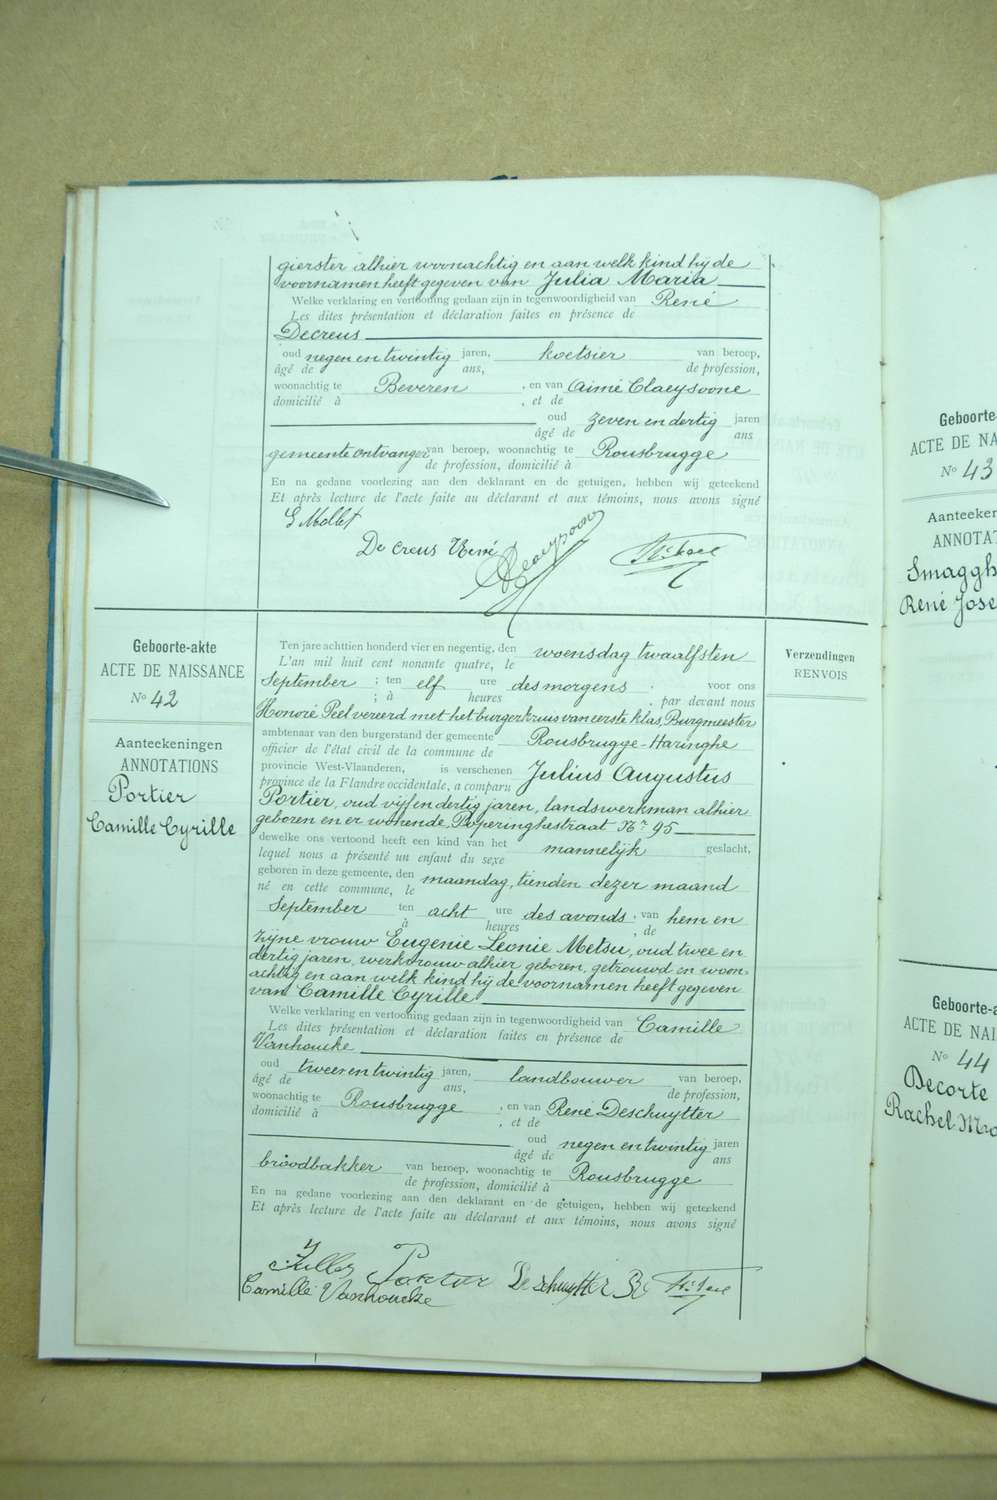 gierster alhier woonachtig en aan welk kind hy de
voornamen heeft gegeven van Julia Maria
Welke verklaring en vertooning gedaan zijn in tegenwoordigheid van René
Les dites présentation et déclaration faites en présence de
Decreus
oud negen en twintig jaren, koetsier van beroep,
âgé de ans, de profession,
woonachtig te Beveren , en van Aimé Claeysoone
domicilié à , et de
oud zeven en dertig jaren
âgé de ans
gemeente ontvanger van beroep, woonachtig te Rousbrugge
de profession, domicilié à
En na gedane voorlezing aan den deklarant en de getuigen, hebben wij geteekend
Et après lecture de l'acte faite au déclarant et aux témoins, nous avons signé
Mollet
De creus René
Claeysoone
Geboorte-akte
ACTE DE NAISSANCE
No 42
Aanteekeningen
ANNOTATIONS
Portier
Camille Cyrille
Ten jare achttien honderd vier en negentig, den woensdag twaalfsten
L'an mil huit cent nonante quatre, le
September ; ten elf ure des morgens . voor ons
; à heures . par devant nous
Honoré Peel vereerd met het burgerkruis van eerste klas, Burgmeester
ambtenaar van den burgerstand der gemeente Rousbrugge-Haringhe
officier de l'état civil de la commune de
provincie West-Vlaanderen, is verschenen Julius Augustus
province de la Flandre occidentale, a comparu
Portier, oud vijf en dertig jaren, landswerkman alhier
geboren en er wonende, Poperinghestraat Nr 95
dewelke ons vertoond heeft een kind van het mannelijk geslacht,
lequel nous a présenté un enfant du sexe
geboren in deze gemeente, den maandag, tienden dezer maand
né en cette commune, le
September ten acht ure des avonds , van hem en
à heures , de
zijne vrouw Eugenie Leonie Metsu, oud twee en
dertig jaren, werkvrouw alhier geboren, getrouwd en woon-
achtig en aan welk kind hij de voornamen heeft gegeven
van Camille Cyrille
Welke verklaring en vertooning gedaan zijn in tegenwoordigheid van Camille
Les dites présentation et déclaration faites en présence de
Vanhoucke
oud twee en twintig jaren, landbouwer van beroep,
âgé de ans, de profession,
woonachtig te Rousbrugge , en van René Deschuytter
domicilié à , et de
oud negen en twintig jaren
âgé de ans
broodbakker van beroep, woonachtig te Rousbrugge
de profession, domicilié à
En na gedane voorlezing aan den deklarant en de getuigen, hebben wij geteekend
Et après lecture de l'acte faite au déclarant et aux témoins, nous avons signé
Camille Vanhoucke
Verzendingen
RENVOIS
Geboorte-
ACTE DE NA
No 43
Aanteeken
ANNOTA
Smaggh
René Jose
Geboorte-a
ACTE DE NAI
No 44
Decorte
Rachel Ma